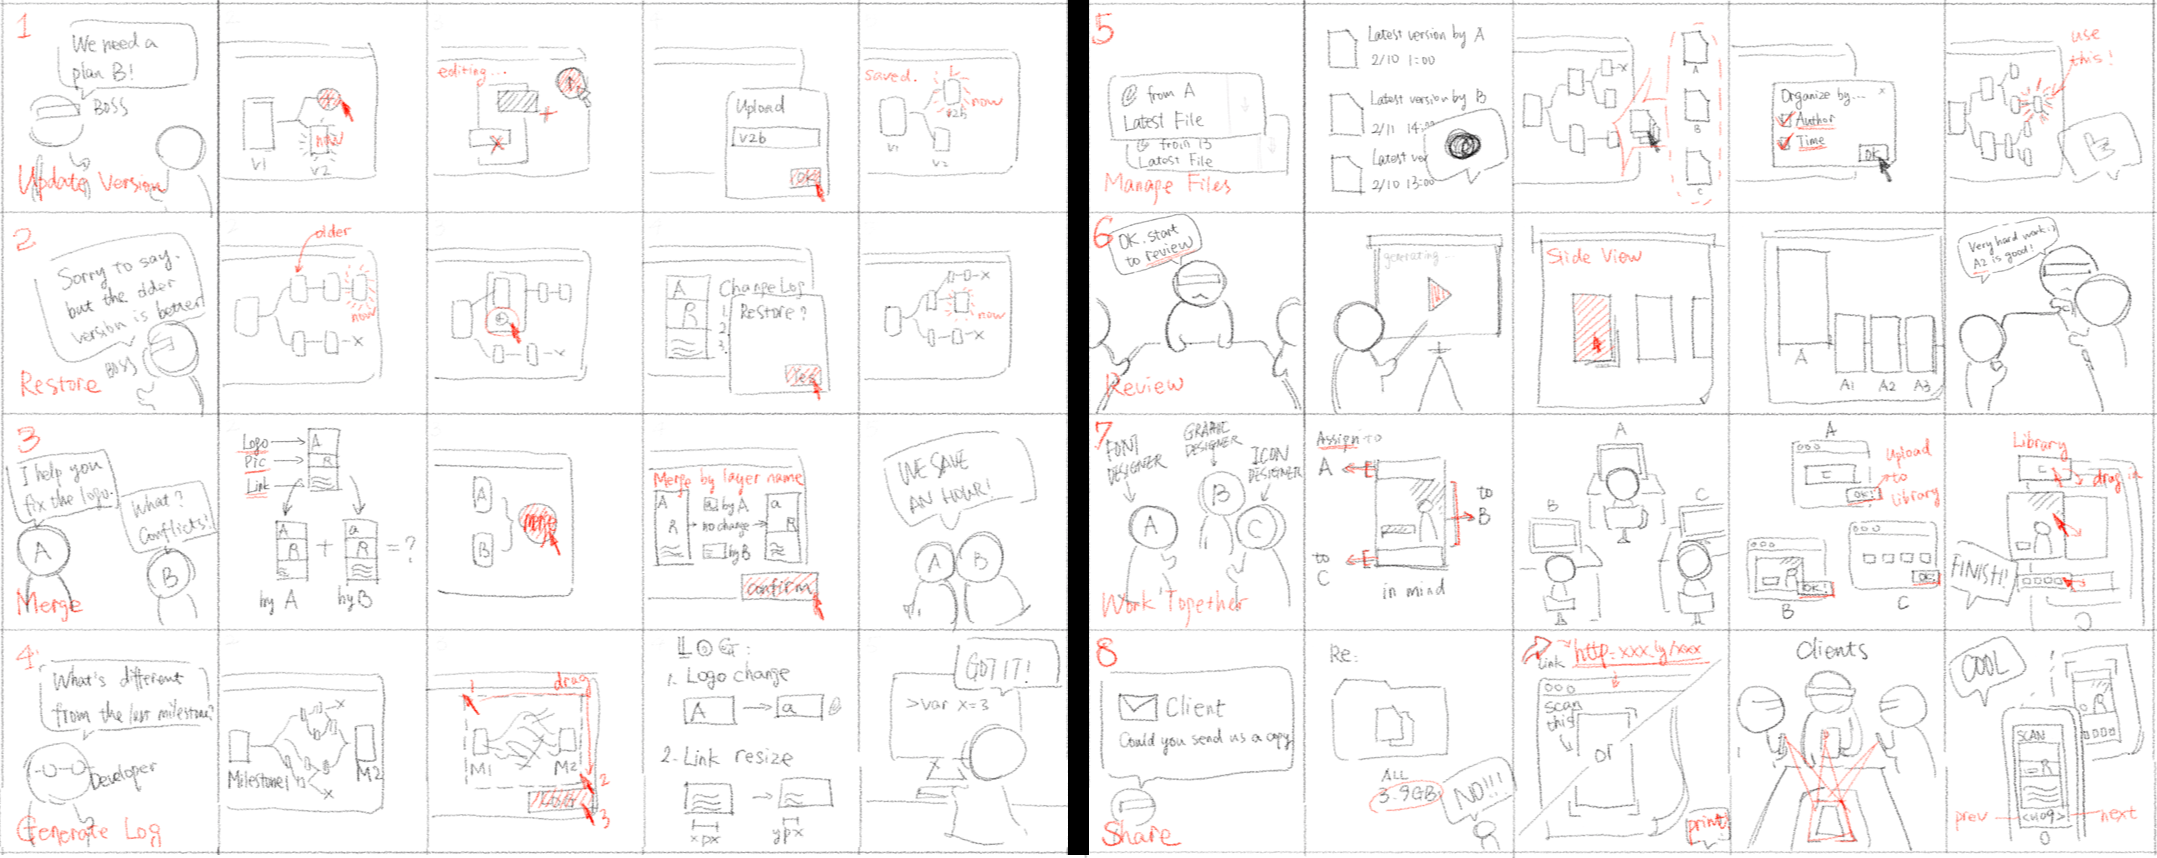 1
We need a
plan B!
BOSS
Update Version
v1
now
v2
editing...
Upload
v2b
OK
saved.
now
v2b
v1
v2
2
Sorry to say.
but the older
version is better
BOSS
Restore
older
now
x
x
A
R
Change Log
1.
2.
3.
Restore?
Yes
x
now
x
3
I help you
fix the logo.
What?
Conflicts!
A
B
Merge
Logo
Pic
Link
A
R
A
R
+
a
R
=?
by A
by B
A
B
merge
Merge by layer name
A
R
a by A
no change
by B
a
R
confirm
WE SAVE
AN HOUR!
A
B
4
What's different
from the last milestone?
Developer
Generate Log
Milestone1
x
x
M2
1
drag
M1
M2
2
3
LOG:
1. Logo change
A
a
2. Link resize
xpx
ypx
GOT IT!
>var x=3
5
@ from A
Latest File
@ from B
Latest File
Manage Files
Latest version by A
2/10 1:00
Latest version by B
2/11 14:
Latest ver
2/10 13:00
x
A
B
C
Organize by...
x
Author
Time
OK
use
this!
6
OK. start
to review
Review
generating...
Slide View
A
A1
A2
A3
Very hard work:)
A2 is good!
7
FONT
DESIGNER
GRAPHIC
DESIGNER
ICON
DESIGNER
A
B
C
Work Together
Assign to
A
to
B
to
C
in mind
A
B
C
A
upload
to
library
OK!
OK!
B
OK!
C
Library
drag in
FINISH!
8
Client
Could you send us a copy
Share
Re:
ALL
3.9GB
NO!!!
Link
http:xxx.ly/xxx
scan
this
or
print
Clients
COOL
SCAN
R
R
prev
<log>
next